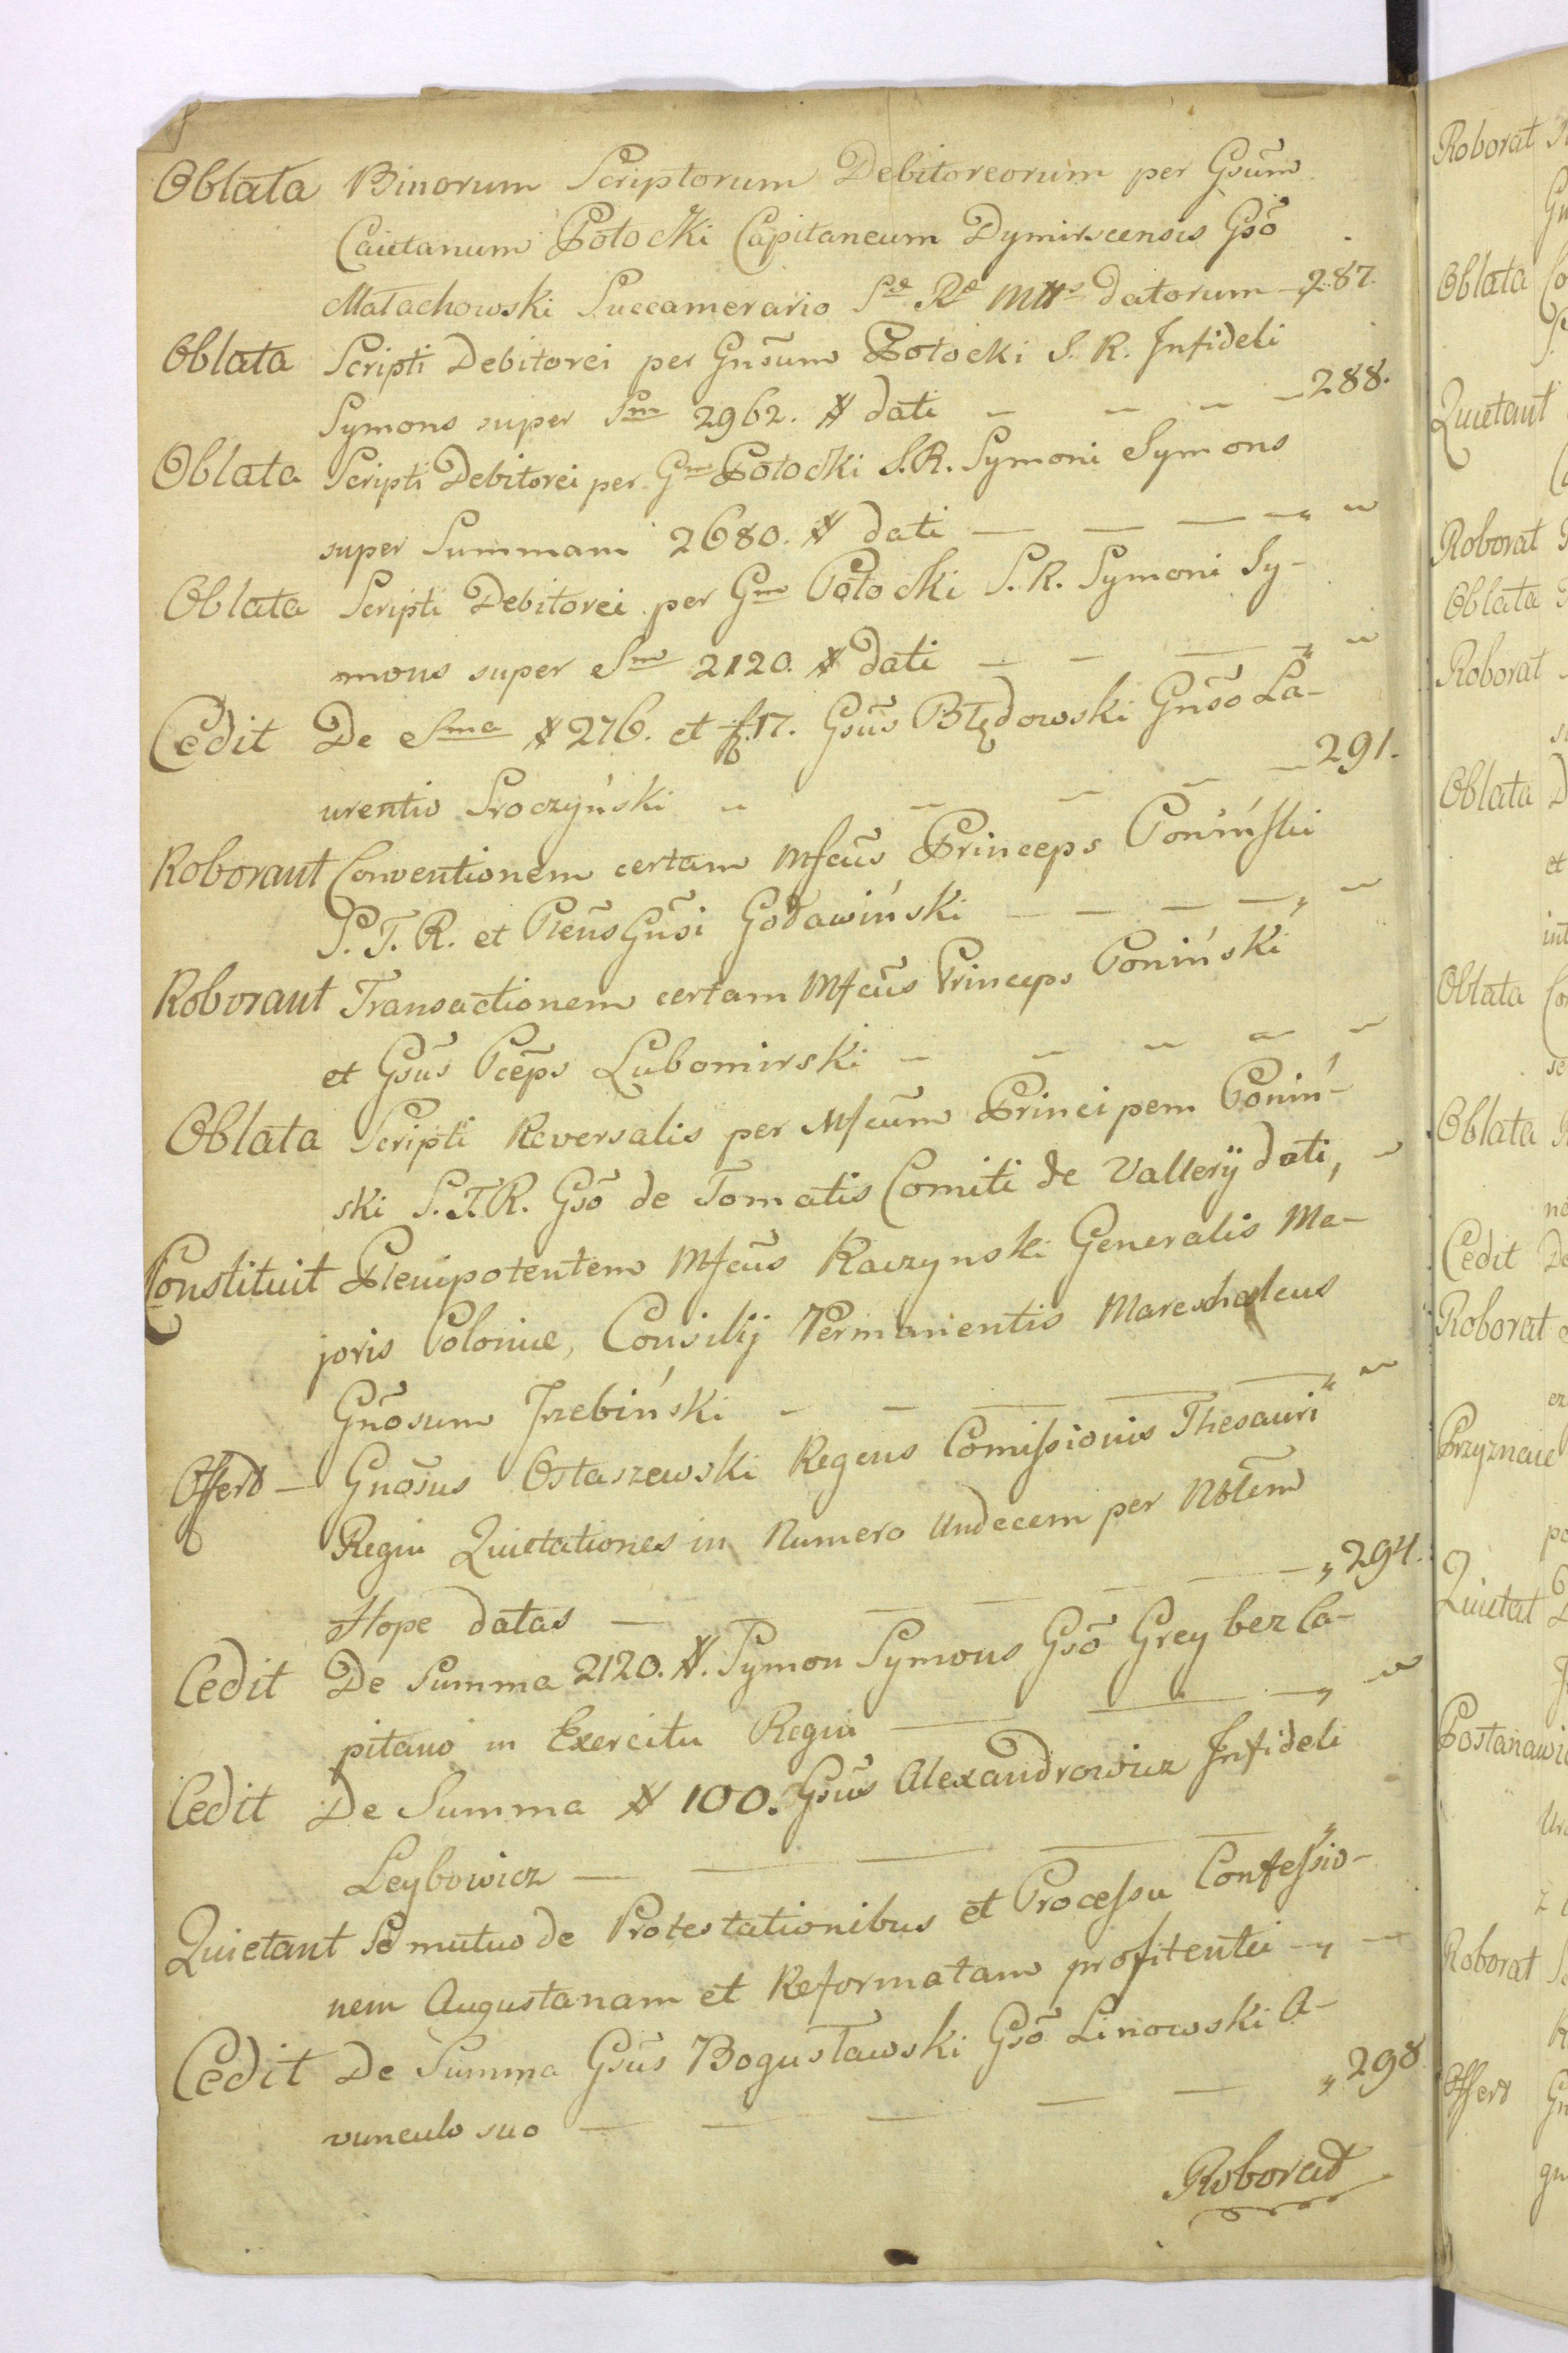 Oblata Binorum Scriptorum Debitoreorum per Gsũm
Caietanum Potocki Capitaneum Dymirscensis Gsõ
Małachowski Succamerario Sæ Ræ Mttis datorum — 287.
Oblata Scripti Debitorei per Gnsũm Potocki S. R. Infideli
Symons super Sm 2962. # dati — — — — 288.
Oblata Scripti Debitorei per Gm Potocki S. R. Symoni Symons
super Summam 2680. # dati — — — — „ ~
Oblata Scripti Debitorei per Gm Potocki S. R. Symoni Sy-
mons super Sm 2120. # dati — — — „ ~
Cedit De Sma # 276. et f. 17. Gsũs Błędowski Gnsõ La-
urentio Sroczyński ~ — — — — 291.
Roborant Conventionem certam Mfcũs Princeps Poniński
S. T. R. et Plenũs Gnsĩ Godawiński — — — „ ~
Roborant Transactionem certam Mfcũs Princeps Poniński
et Gsũs Pcẽps Lubomirski — ~ ~ ~ ~
Oblata Scripti Reversalis per Mfcũm Principem Poniń-
ski S. T. R. Gsõ de Tomatis Comiti de Vallerÿ dati, ~
Constituit Plenipotentem Mfcũs Raczynski Generalis Ma-
joris Poloniæ, Consilij Permanentis Mareschaleus
Gnõsum Trzebiński — — — — „ ~
Offert — Gnõsus Ostaszewski Regens Comissionis Thesauri
Regni Quietationes in Numero Undecem per Nblẽm
Hope datas — — — — — „ 294.
Cedit De Summa 2120. #. Symon Symons Gsõ Greyber Ca-
pitano in Exercitu Regni — — — „ ~
Cedit De Summa # 100. Gsũs Alexandrowicz Infideli
Leybowicz — — — — — „
Quietant Se mutuo de Protestationibus et Processu Confessio-
nem Augustanam et Reformatam profitentei — „ —
Cedit De Summa Gsũs Bogusławski Gsõ Linowski A-
vunculo suo — — — — — „ 298
Roborat
Roborat
Oblata
Quietant
Roborat
Oblata
Roborat
Oblata
Oblata
Oblata
Cedit
Roborat
Przyznaie
Quietat
Postanawia
Roborat
Offert